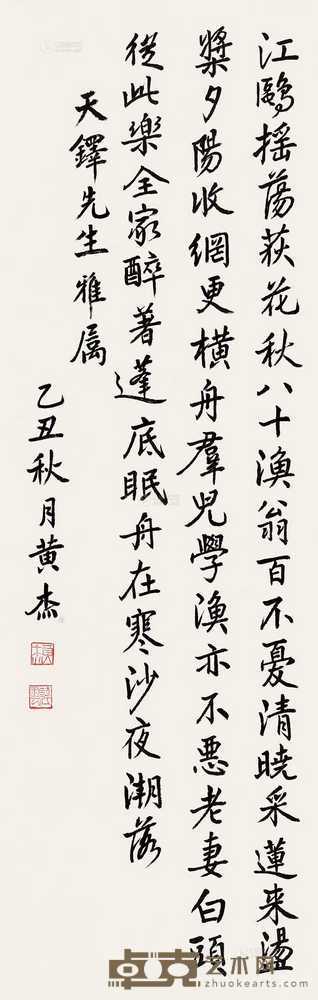 江鷗搖蕩荻花秋八十漁翁百不憂清曉采蓮来盪
槳夕陽收網更橫舟羣兒學漁亦不惡老妻白頭
從此樂全家醉著蓬底眠舟在寒沙夜潮落
天鐸先生雅属
乙丑秋月黄杰
卓克艺术网
zhuokearts.com